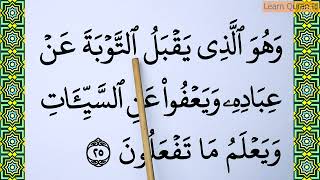 Learn Quran
وَهُوَ ٱلَّذِى يَقۡبَلُ ٱلتَّوۡبَةَ عَنۡ
عِبَادِهِۦ وَيَعۡفُواْ عَنِ ٱلسَّيِّـَٔاتِ
وَيَعۡلَمُ مَا تَفۡعَلُونَ ٢٥